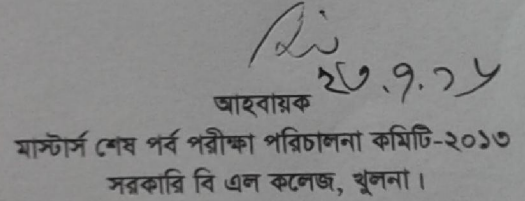 ২৩.৭.১৮
আহবায়ক
মাস্টার্স শেষ পর্ব পরীক্ষা পরিচালনা কমিটি-২০১৩
সরকারি বি এল কলেজ, খুলনা।